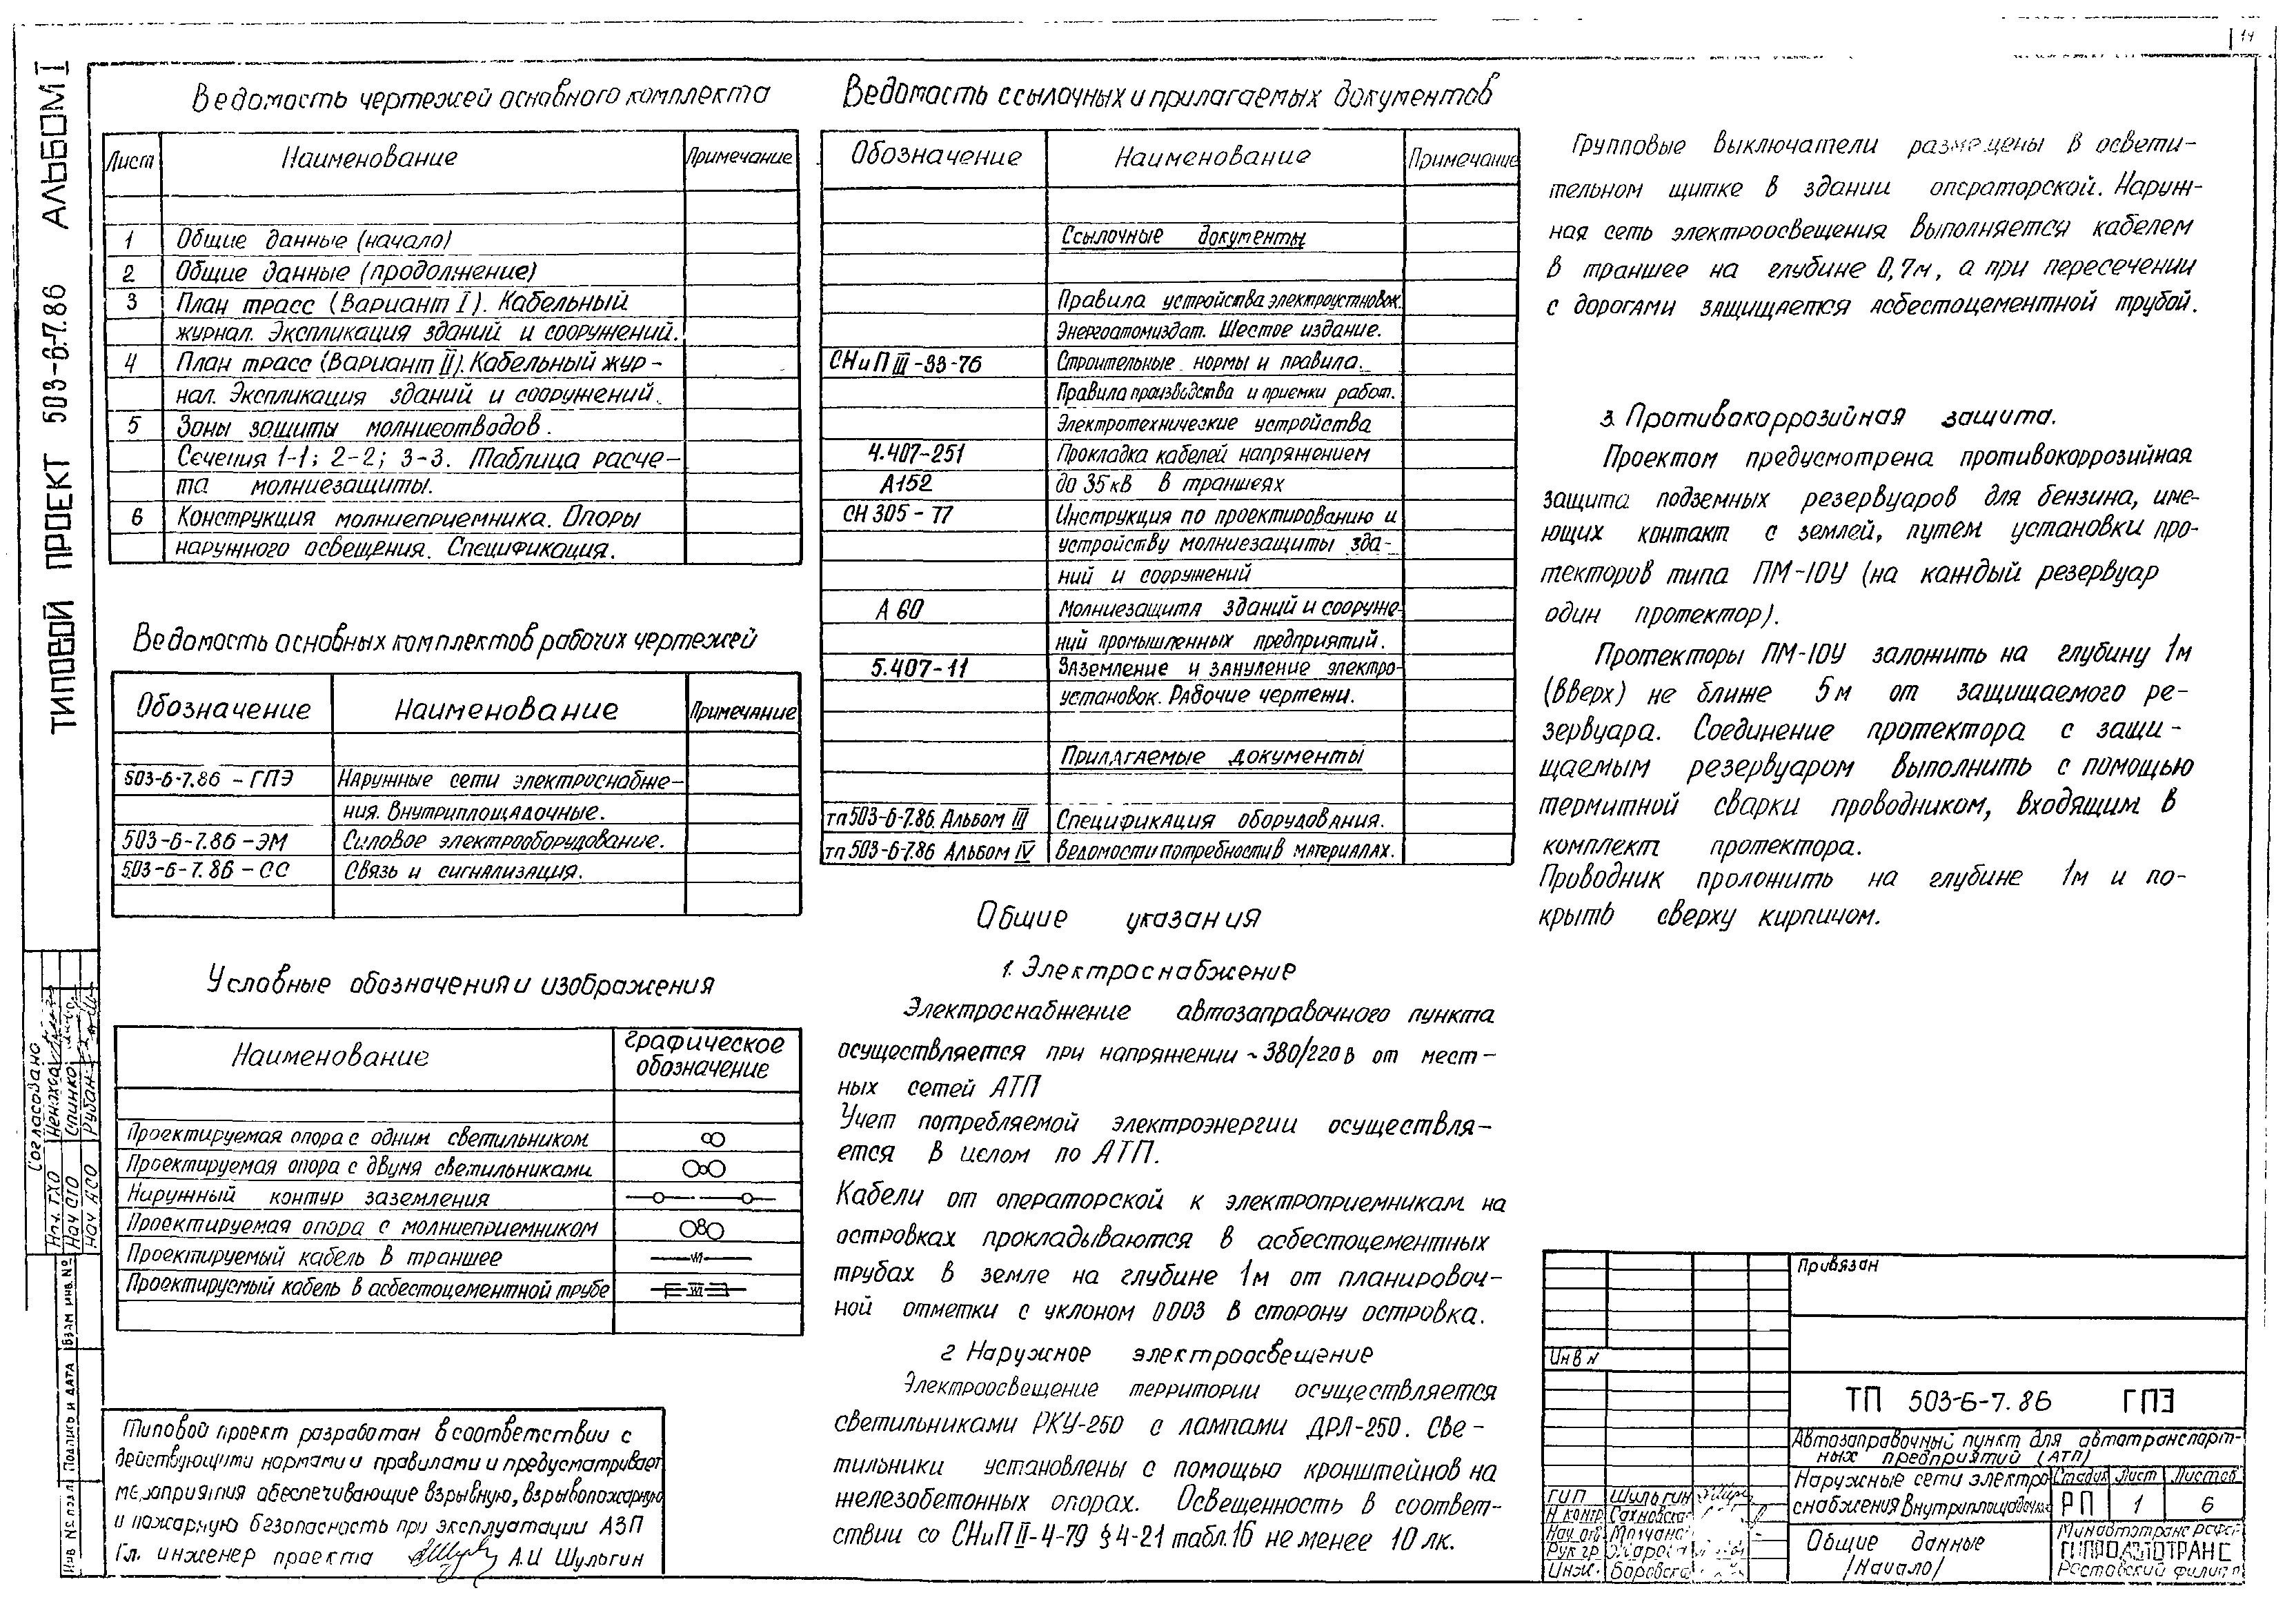 14
ТИПОВОЙ ПРОЕКТ 503-6-7.86 АЛЬБОМ I
Ведомость чертежей основного комплекта
Лист Наименование Примечание
1 Общие данные (начало)
2 Общие данные (продолжение)
3 План трасс (Вариант I). Кабельный
журнал. Экспликация зданий и сооружений.
4 План трасс (Вариант II). Кабельный жур-
нал. Экспликация зданий и сооружений.
5 Зоны защиты молниеотводов.
Сечения 1-1; 2-2; 3-3. Таблица расче-
та молниезащиты.
6 Конструкция молниеприемника. Опоры
наружного освещения. Спецификация.
Ведомость основных комплектов рабочих чертежей
Обозначение Наименование Примечание
503-6-7.86 - ГПЭ Наружные сети электроснабже-
ния. Внутриплощадочные.
503-6-7.86 - ЭМ Силовое электрооборудование.
503-6-7.86 - СС Связь и сигнализация.
Условные обозначения и изображения
Наименование Графическое обозначение
Проектируемая опора с одним светильником
Проектируемая опора с двумя светильниками
Наружный контур заземления
Проектируемая опора с молниеприемником
Проектируемый кабель в траншее
Проектируемый кабель в асбестоцементной трубе
Типовой проект разработан в соответствии с
действующими нормами и правилами и предусматривает
мероприятия обеспечивающие взрывную, взрывопожарную
и пожарную безопасность при эксплуатации АЗП
Гл. инженер проекта А.И Шульгин
Ведомость ссылочных и прилагаемых документов
Обозначение Наименование Примечание
Ссылочные документы
Правила устройства электроустновок.
Энергоатомиздат. Шестое издание.
СНиП III-33-76 Строительные нормы и правила.
Правила производства и приемки работ.
Электротехнические устройства
4.407-251 Прокладка кабелей напряжением
А152 до 35кВ в траншеях
СН 305 - 77 Инструкция по проектированию и
устройству молниезащиты зда-
ний и сооружений
А 60 Молниезащита зданий и сооруже-
ний промышленных предприятий.
5.407-11 Заземление и зануление электро-
установок. Рабочие чертежи.
Прилагаемые документы
тп 503-6-7.86. Альбом III Спецификация оборудования.
тп 503-6-7.86 Альбом IV Ведомости потребности в материалах.
Общие указания
1. Электроснабжение
Электроснабжение автозаправочного пункта
осуществляется при напряжении ~380/220в от мест-
ных сетей АТП
Учет потребляемой электроэнергии осуществля-
ется в целом по АТП.
Кабели от операторской к электроприемникам на
островках прокладываются в асбестоцементных
трубах в земле на глубине 1м от планировоч-
ной отметки с уклоном 0003 в сторону островка.
2 Наружное электроосвещение
Электроосвещение территории осуществляется
светильниками РКУ-250 с лампами ДРЛ-250. Све-
тильники установлены с помощью кронштейнов на
железобетонных опорах. Освещенность в соответ-
ствии со СНиП II-4-79 § 4-21 табл. 16 не менее 10 лк.
Групповые выключатели размещены в освети-
тельном щитке в здании операторской. Наруж-
ная сеть электроосвещения выполняется кабелем
в траншее на глубине 0,7м, а при пересечении
с дорогами защищается асбестоцементной трубой.
3. Противокоррозийная защита.
Проектом предусмотрена противокоррозийная
защита подземных резервуаров для бензина, име-
ющих контакт с землей, путем установки про-
текторов типа ПМ-10У (на каждый резервуар
один протектор).
Протекторы ПМ-10У заложить на глубину 1м
(вверх) не ближе 5м от защищаемого ре-
зервуара. Соединение протектора с защи-
щаемым резервуаром выполнить с помощью
термитной сварки проводником, входящим в
комплект протектора.
Проводник проложить на глубине 1м и по-
крыть сверху кирпичом.
Согласовано
Нач. ТХО
Нач СТО Спинко
Нач АСО Рубан
Инв № подл Подпись и дата Взам инв. №
Привязан
Инв N
ТП 503-6-7.86 ГПЭ
Автозаправочный пункт для автотранспорт-
ных предприятий (АТП)
Наружные сети электро
снабжения Внутриплощадочные
Стадия Лист Листов
РП 1 6
ГИП Шильгин
Н контр Сахновская
Нач. отд
Рук гр
Инж.
Общие данные
/Начало/
Минавтотранс РСФСР
ГИПРОАВТОТРАНС
Ростовский филиал